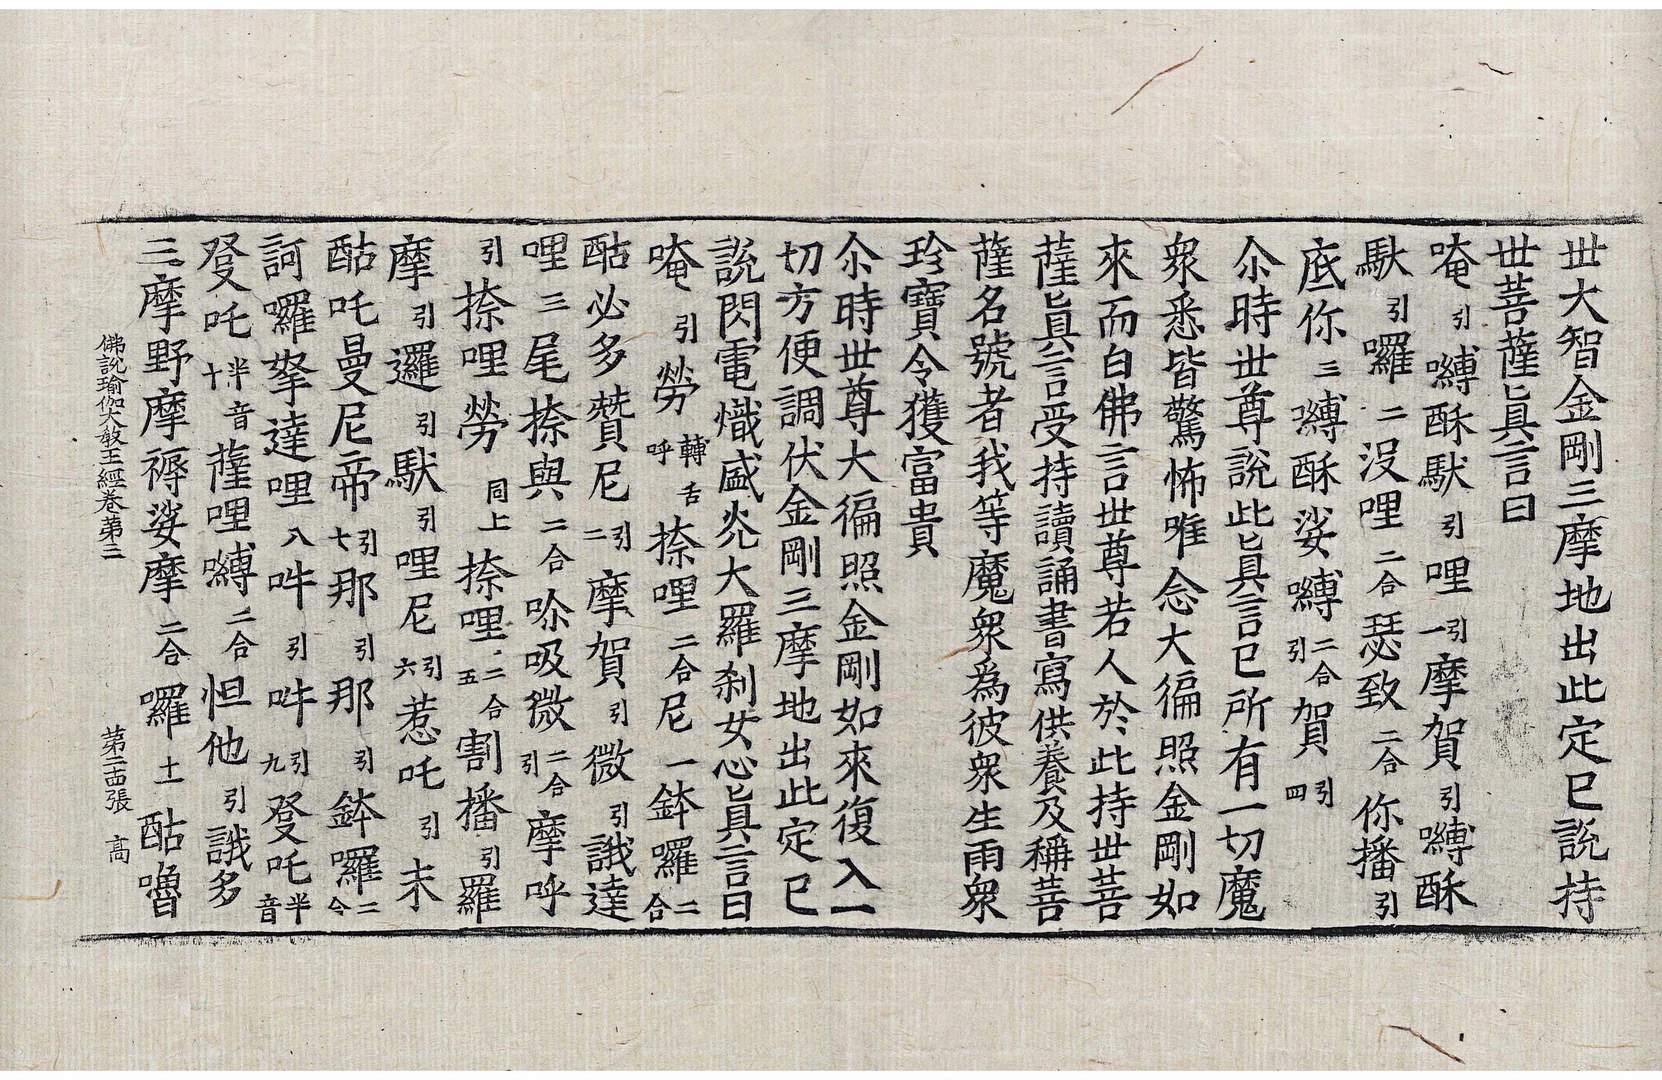 世大智金剛三摩地出此定已說持
世菩薩眞言曰
唵引嚩酥馱引哩引一摩賀引嚩酥
馱引囉二沒哩二合瑟致二合你播引
底你三嚩酥娑嚩二合引賀引四
尒時世尊說此眞言已所有一切魔
衆悉皆驚怖唯念大徧照金剛如
來而白佛言世尊若人於此持世菩
薩眞言受持讀誦書寫供養及稱菩
薩名號者我等魔衆爲彼衆生雨衆
珍寶令獲富貴
尒時世尊大徧照金剛如來復入一
切方便調伏金剛三摩地出此定已
說閃電熾盛光大羅刹女心眞言曰
唵引嘮轉舌呼捺哩二合尼一鉢囉二合
酤必多贊尼引二摩賀引微引誐達
哩三尾捺與二合吩吸微二合引摩呼
引捺哩嘮同上捺哩二合五割播引羅
摩引邏引馱引哩尼引六惹吒引末
酤吒曼尼帝引七那引那引鉢囉二合
訶囉拏達哩八吽引吽引九發吒半音
發吒半音十薩哩嚩二合怛他引誐多
三摩野摩禱娑摩二合囉十一酤嚕
佛說瑜伽大教王經卷第三 第二十四張 高